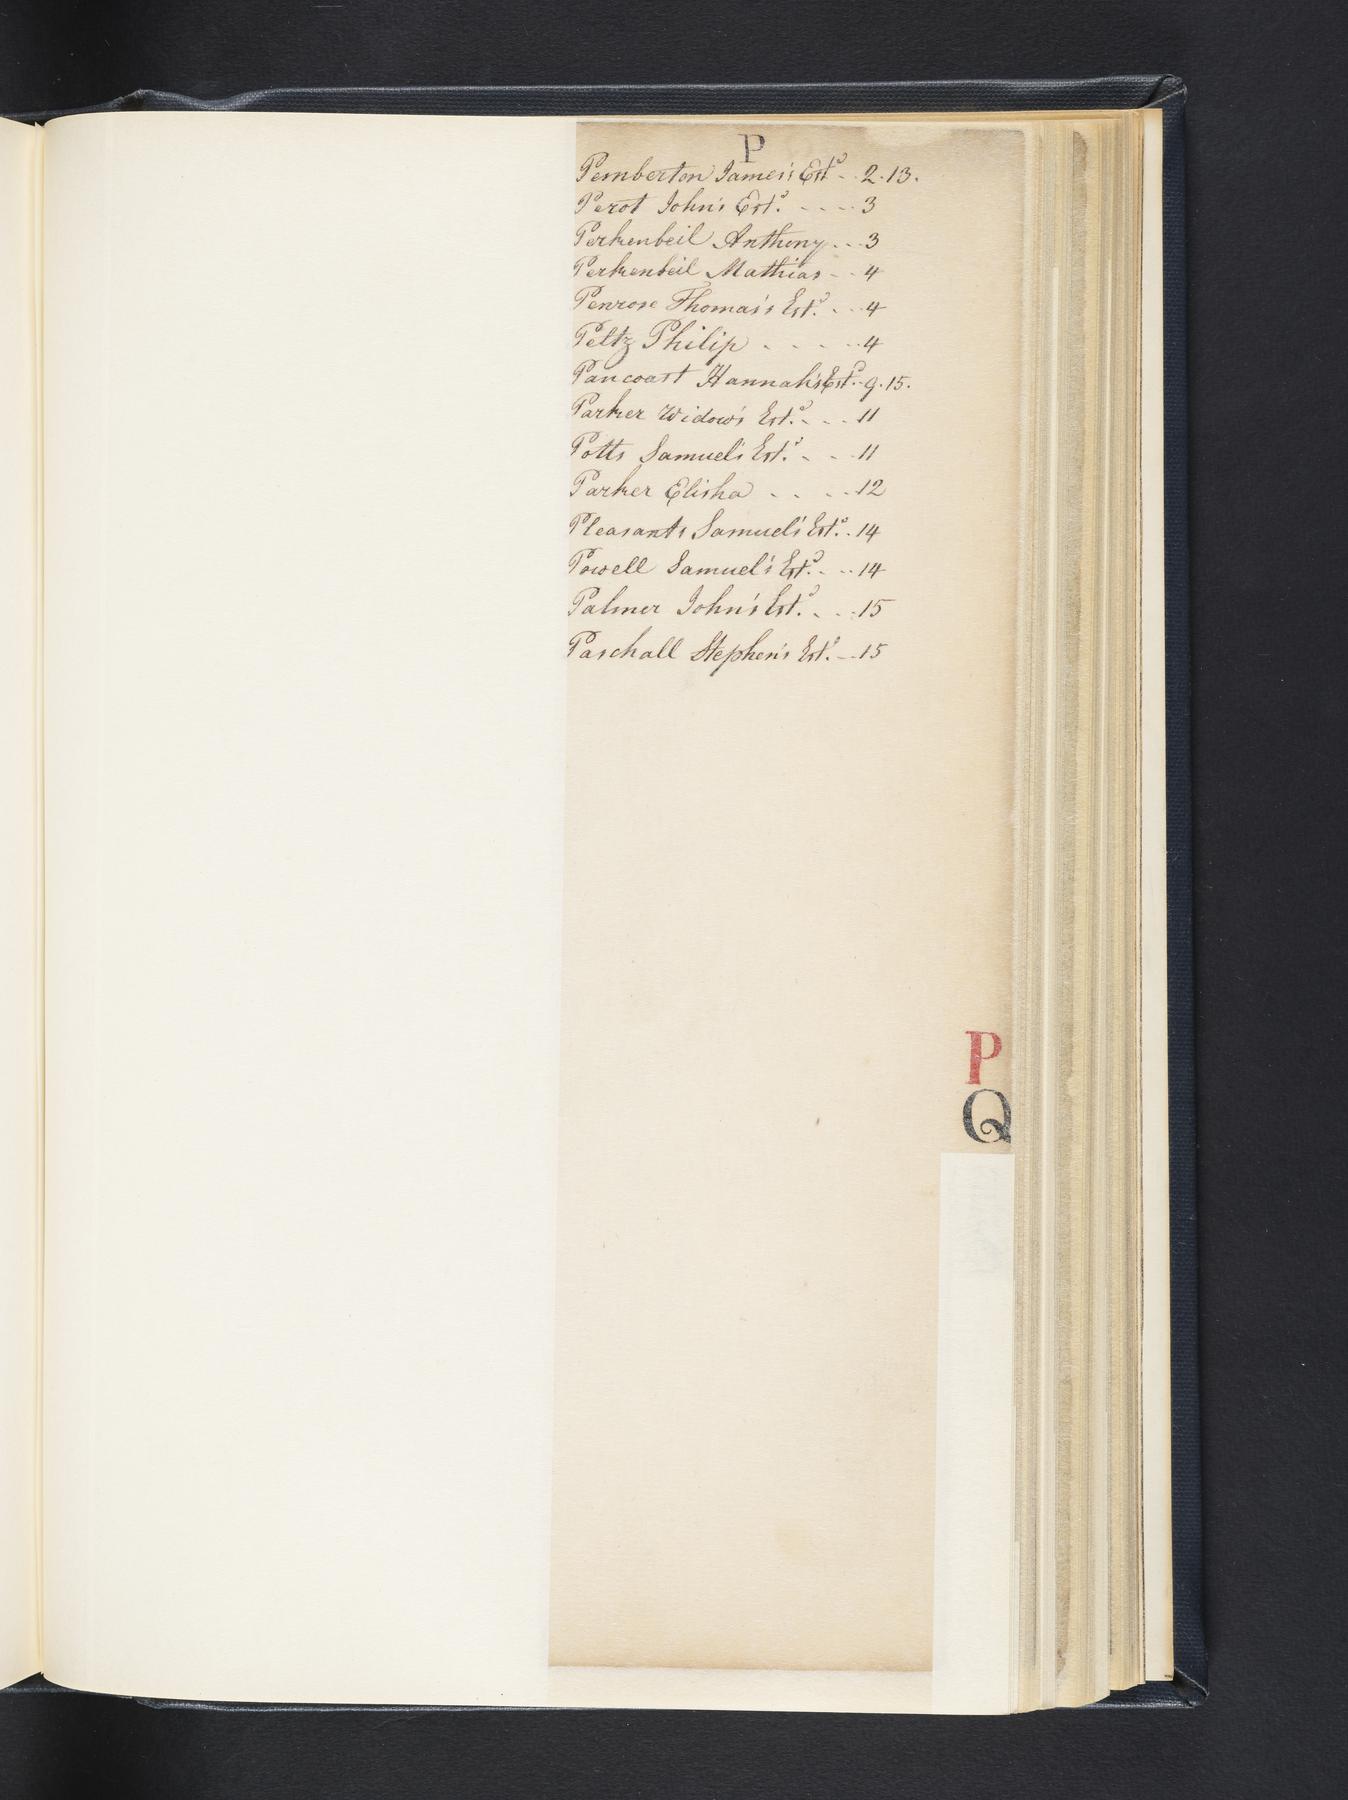 P
Pemberton James's Estd - - 2.13.
Perot John's Estd. - - - - 3
Perkenbeil Anthony - - - 3
Perkenbeil Mathias - - 4
Penrose Thomas's Estd. - - - 4
Peltz Philip - - - - - 4
Pancoast Hannah's Estd. - 9.15.
Parker Widow's Estd. - - - 11
Potts Samuel's Estd. - - - 11
Parker Elisha - - - - 12
Pleasants Samuel's Estd. - 14
Powell Samuel's Estd. - - - 14
Palmer John's Estd. - - - 15
Paschall Stephen's Estd. - - 15
P
Q